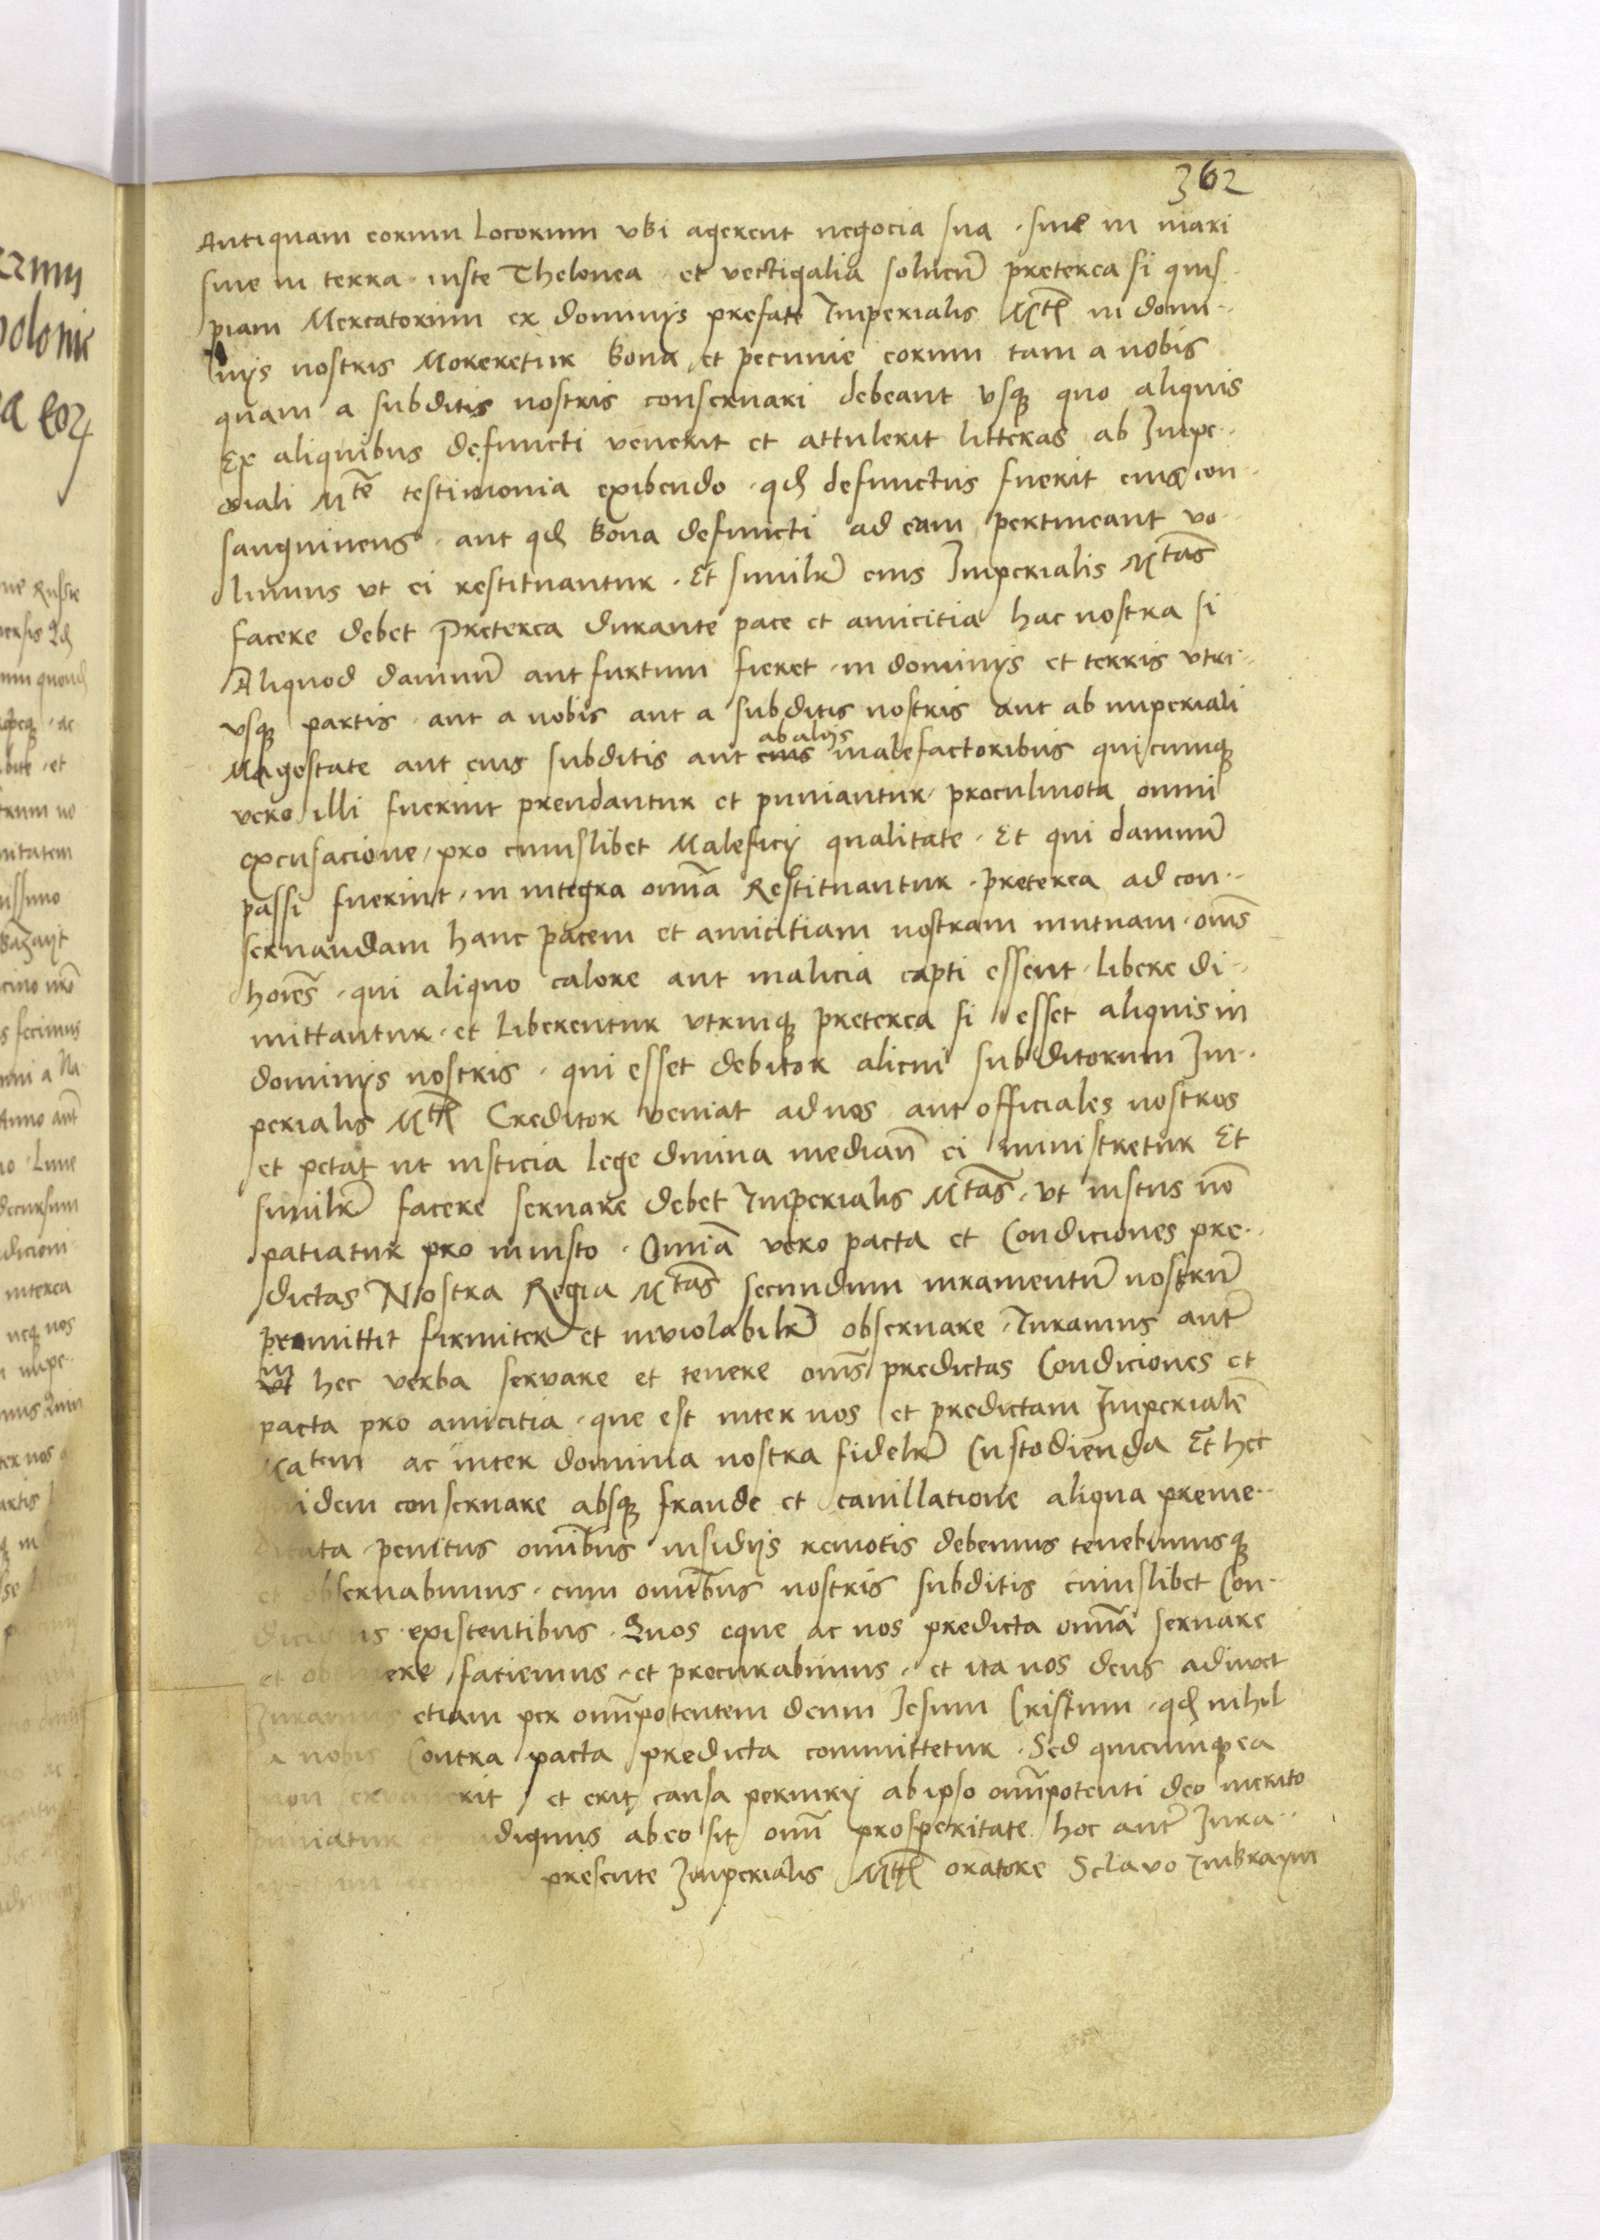 362
Antiquam eorum Locorum vbi agerent negocia sua · siue in mari
siue in terra · iuste Thelonea · et vectigalia soluen̄t preterea si quis
piam Mercatorum ex dominijs prefate Imperialis Mt̄is in domi··
nijs nostris Moreretur bona et pecunie eorum tam a nobis
quam a subditis nostris conseruari debeant vsqꝫ quo aliquis
Ex aliquibus defuncti venerit et attulerit litteras ab Impe··
riali Mtē testimonia exibendo · qđ defunctus fuerit eius con
sanguineus · aut qđ bona defuncti ad eam pertineant vo··
lumus vt ei restituantur · Et similit̄ eius Imperialis Mtās
facere debet Preterea durante pace et amicitia hac nostra si
Aliquod damnū aut furtum fieret · in dominijs et terris vtri··
vsqꝫ partis · aut a nobis aut a subditis nostris aut ab imperiali
Magestate aut eius subditis aut eius ab alijs malefactoribus quicumqꝫ
vero illi fuerint prendantur et puniantur proculmota omni
excusacione / pro cuiuslibet Maleficij qualitate · Et qui damnū
passi fuerint · in integra omīa Restituantur · preterea ad con··
seruandam hanc pacem et amicitiam nostram mutuam · oms̄
hoīes · qui aliquo calore aut malicia capti essent · libere di··
mittantur · et Liberentur vtrinqꝫ preterea si esset aliquis in
dominijs nostris · qui esset debitor alicui subditorum Im··
perialis Mt̄is Creditor veniat ad nos aut officiales nostros
et petat ut iusticia lege diuina median̄ ei ministretur Et
similit̄ facere seruare debet Imperialis Mtās · vt iustus nō
patiatur pro iniusto · Omīa vero pacta et Condiciones pre··
dictas Nostra Regia Mtās secundum iuramentū nostrū
promittit firmiter et inviolabilit̄ obseruare · Iuramus aut̄
vt in hec verba servare et tenere oms̄ predictas Condiciones et
pacta pro amicitia · que est inter nos et predictam Imperialē
tatem ac inter dominia nostra fidelit̄ Custodienda Et hec
idem conseruare absqꝫ fraude et cauillatione aliqua preme··
ditata penitus omībus insidijs remotis debemus tenebimusqꝫ
et obseruabimus · cum omībus nostris subditis cuiuslibet Con··
dicionis existentibus · Quos eque ac nos predicta omīa seruare
et obtinere faciemus · et procurabimus · et ita nos deus adiuvet
Iuramus etiam per omīpotentem deum Jesum Cristum · qđ nihil
a nobis Contra pacta predicta committetur · Sed quicumqꝫ ea
non servauerit / et erit causa periurij ab ipso omīpotenti deo merito
puniatur et indignus ab eo sit omī prosperitate hoc aut̄ Iura··
presente Imperialis Mt̄is oratore Sclavo Imbraym